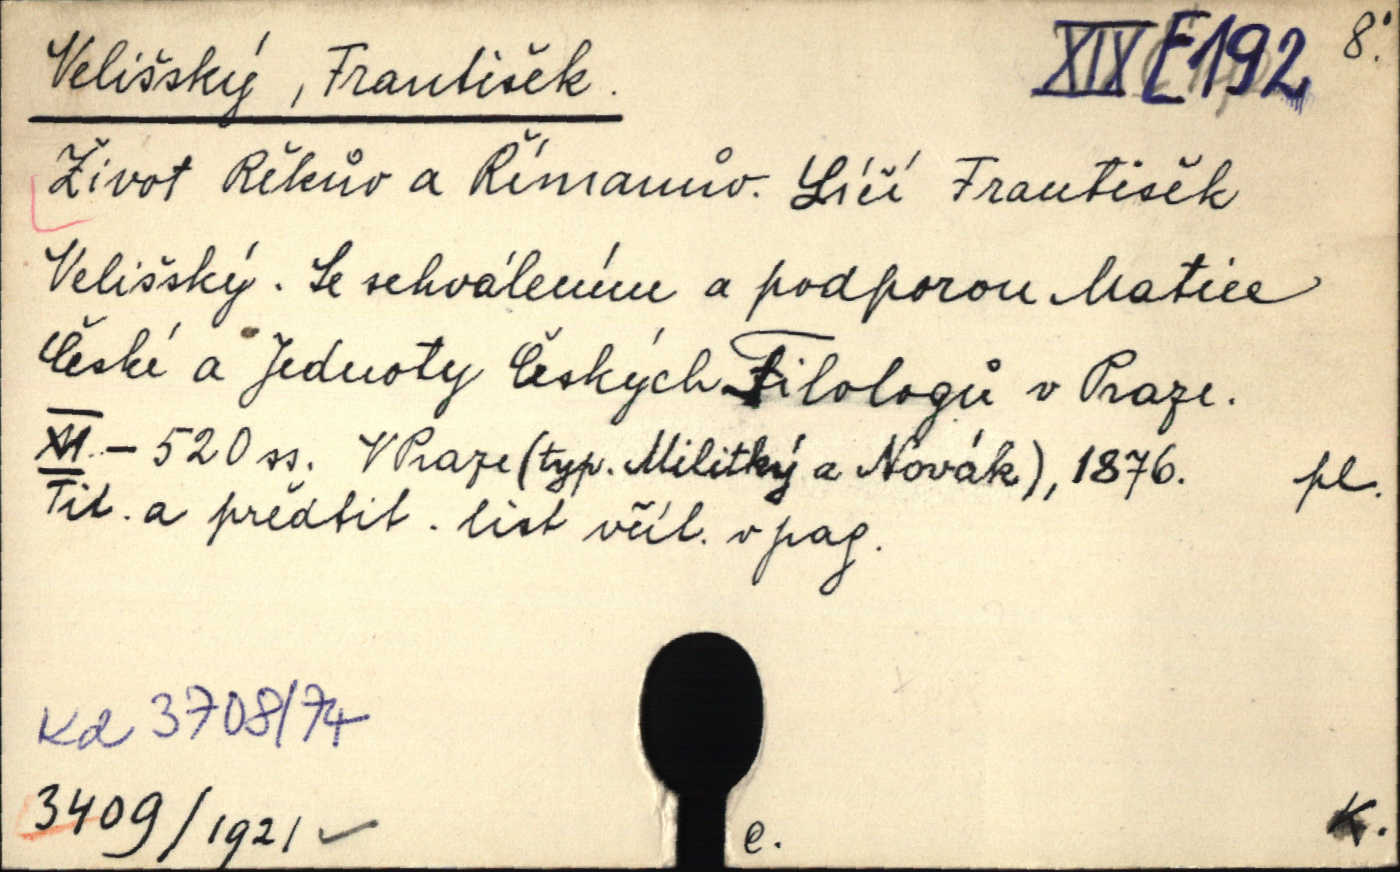 Velišský, František. XIX E 192 8°.
Život Řekův a Římanův. Líčí František
Velišský. Se schválením a podporou Matice
České a Jednoty Českých Filologů v Praze.
XVI - 520 ss. V Praze (typ. Militký a Novák), 1876. pl.
Tit. a předtit. list včíl. v pag.
Kd 3708/74
3409/1921 ✓
e. K.